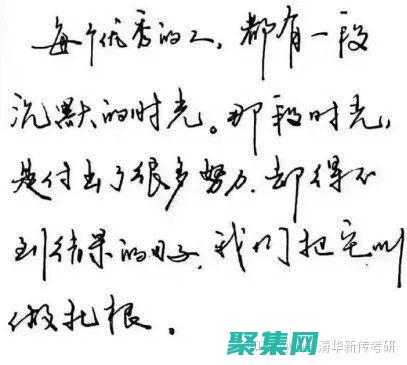 每个优秀的人,都有一段
沉默的时光。那段时光,
是付出了很多努力,却得不
到结果的日子,我们把它叫
做扎根。
清华新传考研
聚集网